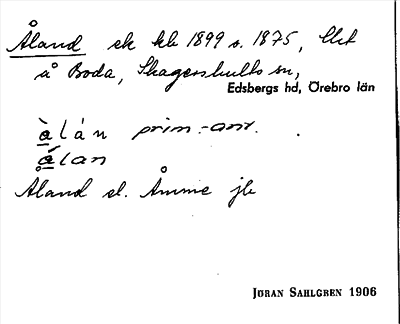 Åland ek kb 1899 s. 1875, Utst
å Boda, Skagershults sn,
Edsbergs hd, Örebro län
àlán prim.-anv.
álan
Åland el. Åmme jb
JÖRAN SAHLGREN 1906